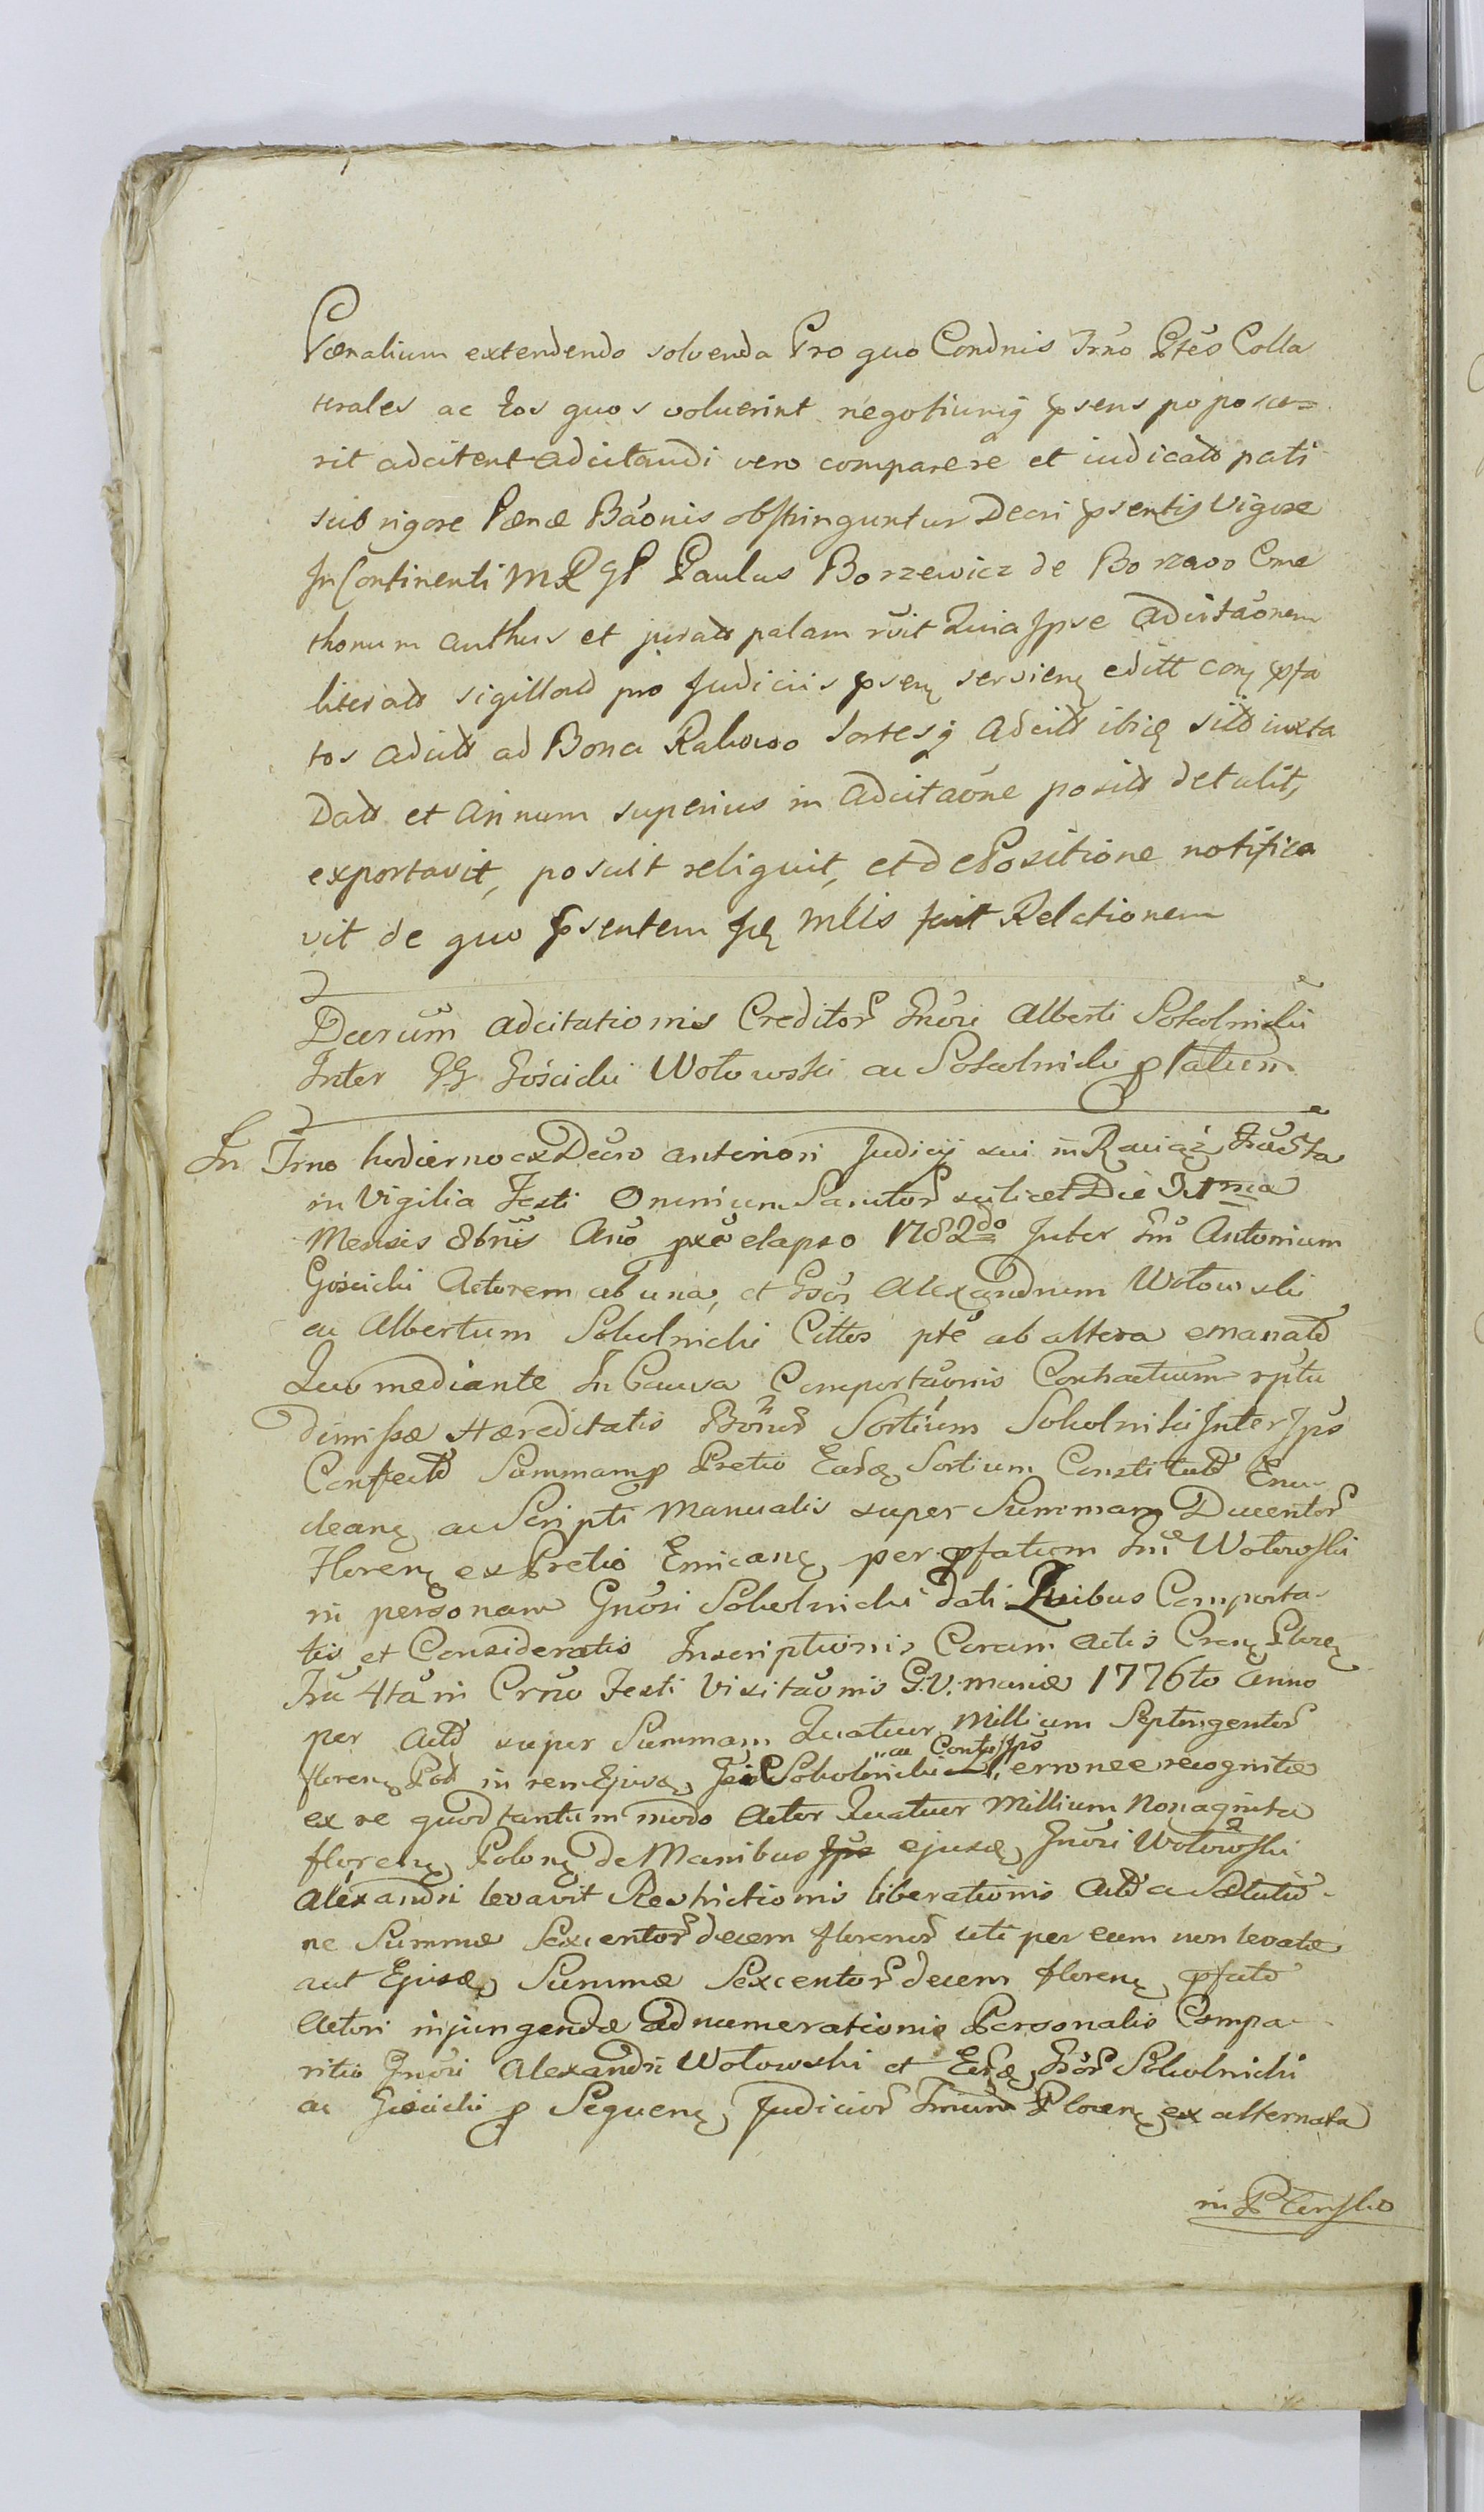 Pœnalium extendendo solvenda Pro quo Condnis Trno Ptes Colla
terales ac eos quos voluerint negotiumq psens poposce=
rit adcitent adcitandi vero comparere et iudicatt pati
sub rigore Pœnæ Baonis obstringuntur Decri psentis Vigore
In Continenti M R GP Paulus Borzewicz de Borzewo Cme
thonum authus et juratt palam rūit Quia Ipse Adcitaonem
literatt sigillatt pro Judiciis psen servien editt con pfa
tos adcitt ad Bona Rakowo Sortesq Adcitt ibid sitt iuxta
Datt et Annum superius in Adcitaone positt detulit,
exportavit, posuit reliquit, et de Positione notifica
vit de quo psentem Id Mlis fuit Relationem
Decrum adcitationis Creditor Gnōri Alberti Sokolnicki
Inter GG Gościcki Wołowski ac Sokolnicki platum
In Trno hodierno ex Decro anteriori Judicij sui in Raciąż
in Vigilia Festi Omnium Sanctor scilicet Die
Mensis 8bris Ano pxe elapso 1782do Inter Gm Antonium
Gościcki Actorem ab una, et Gsos Alexandrum Wołowski
ac Albertum Sokolnicki Cittos pte ab altera emanatt
Quo mediante In Causa Comportaonis Contractuum rptu
dimissæ Hæreditatis Bonor Sortium Sokolniki Inter Ips
Confectt Summamq Pretio Eard Sortium Constitutt Enu
clean ac Scripti Manualis super Summam Ducentor
Floren ex Pretio Emican per pfatum Gm Wołowski
in personam Gnōri Sokolnicki dati Quibus Comporta-
tis et Consideratis Inscriptionis Coram Actis Cren Plocen
Fra 4ta in Crno Festi Visitaonis B.V. Mariæ 1776to Anno
per Actt super Summam Quatuor Millium Septingentor
floren Pol in rem Ejusd Sokolnicki ac Contr Ips erronee recognitæ
ex re quod tantum modo Actor Quatuor Millium Nonaginta
floren Polon de Manibus ejusd Gnōri Wołowski
Alexandri levavit Restrictionis liberationis Actt a Solutio-
ne Summæ Sexcentor decem florenor uti per eum non levatæ
aut Ejusd Summæ Sexcentor decem floren pfatt
Actori injungendæ adnumerationis Personalis Compa-
ritio Gnōri Alexandri Wołowski et Eord Gsor Sokolnicki
ac Gościcki p Sequen Judicior Plocen ex alternata
in